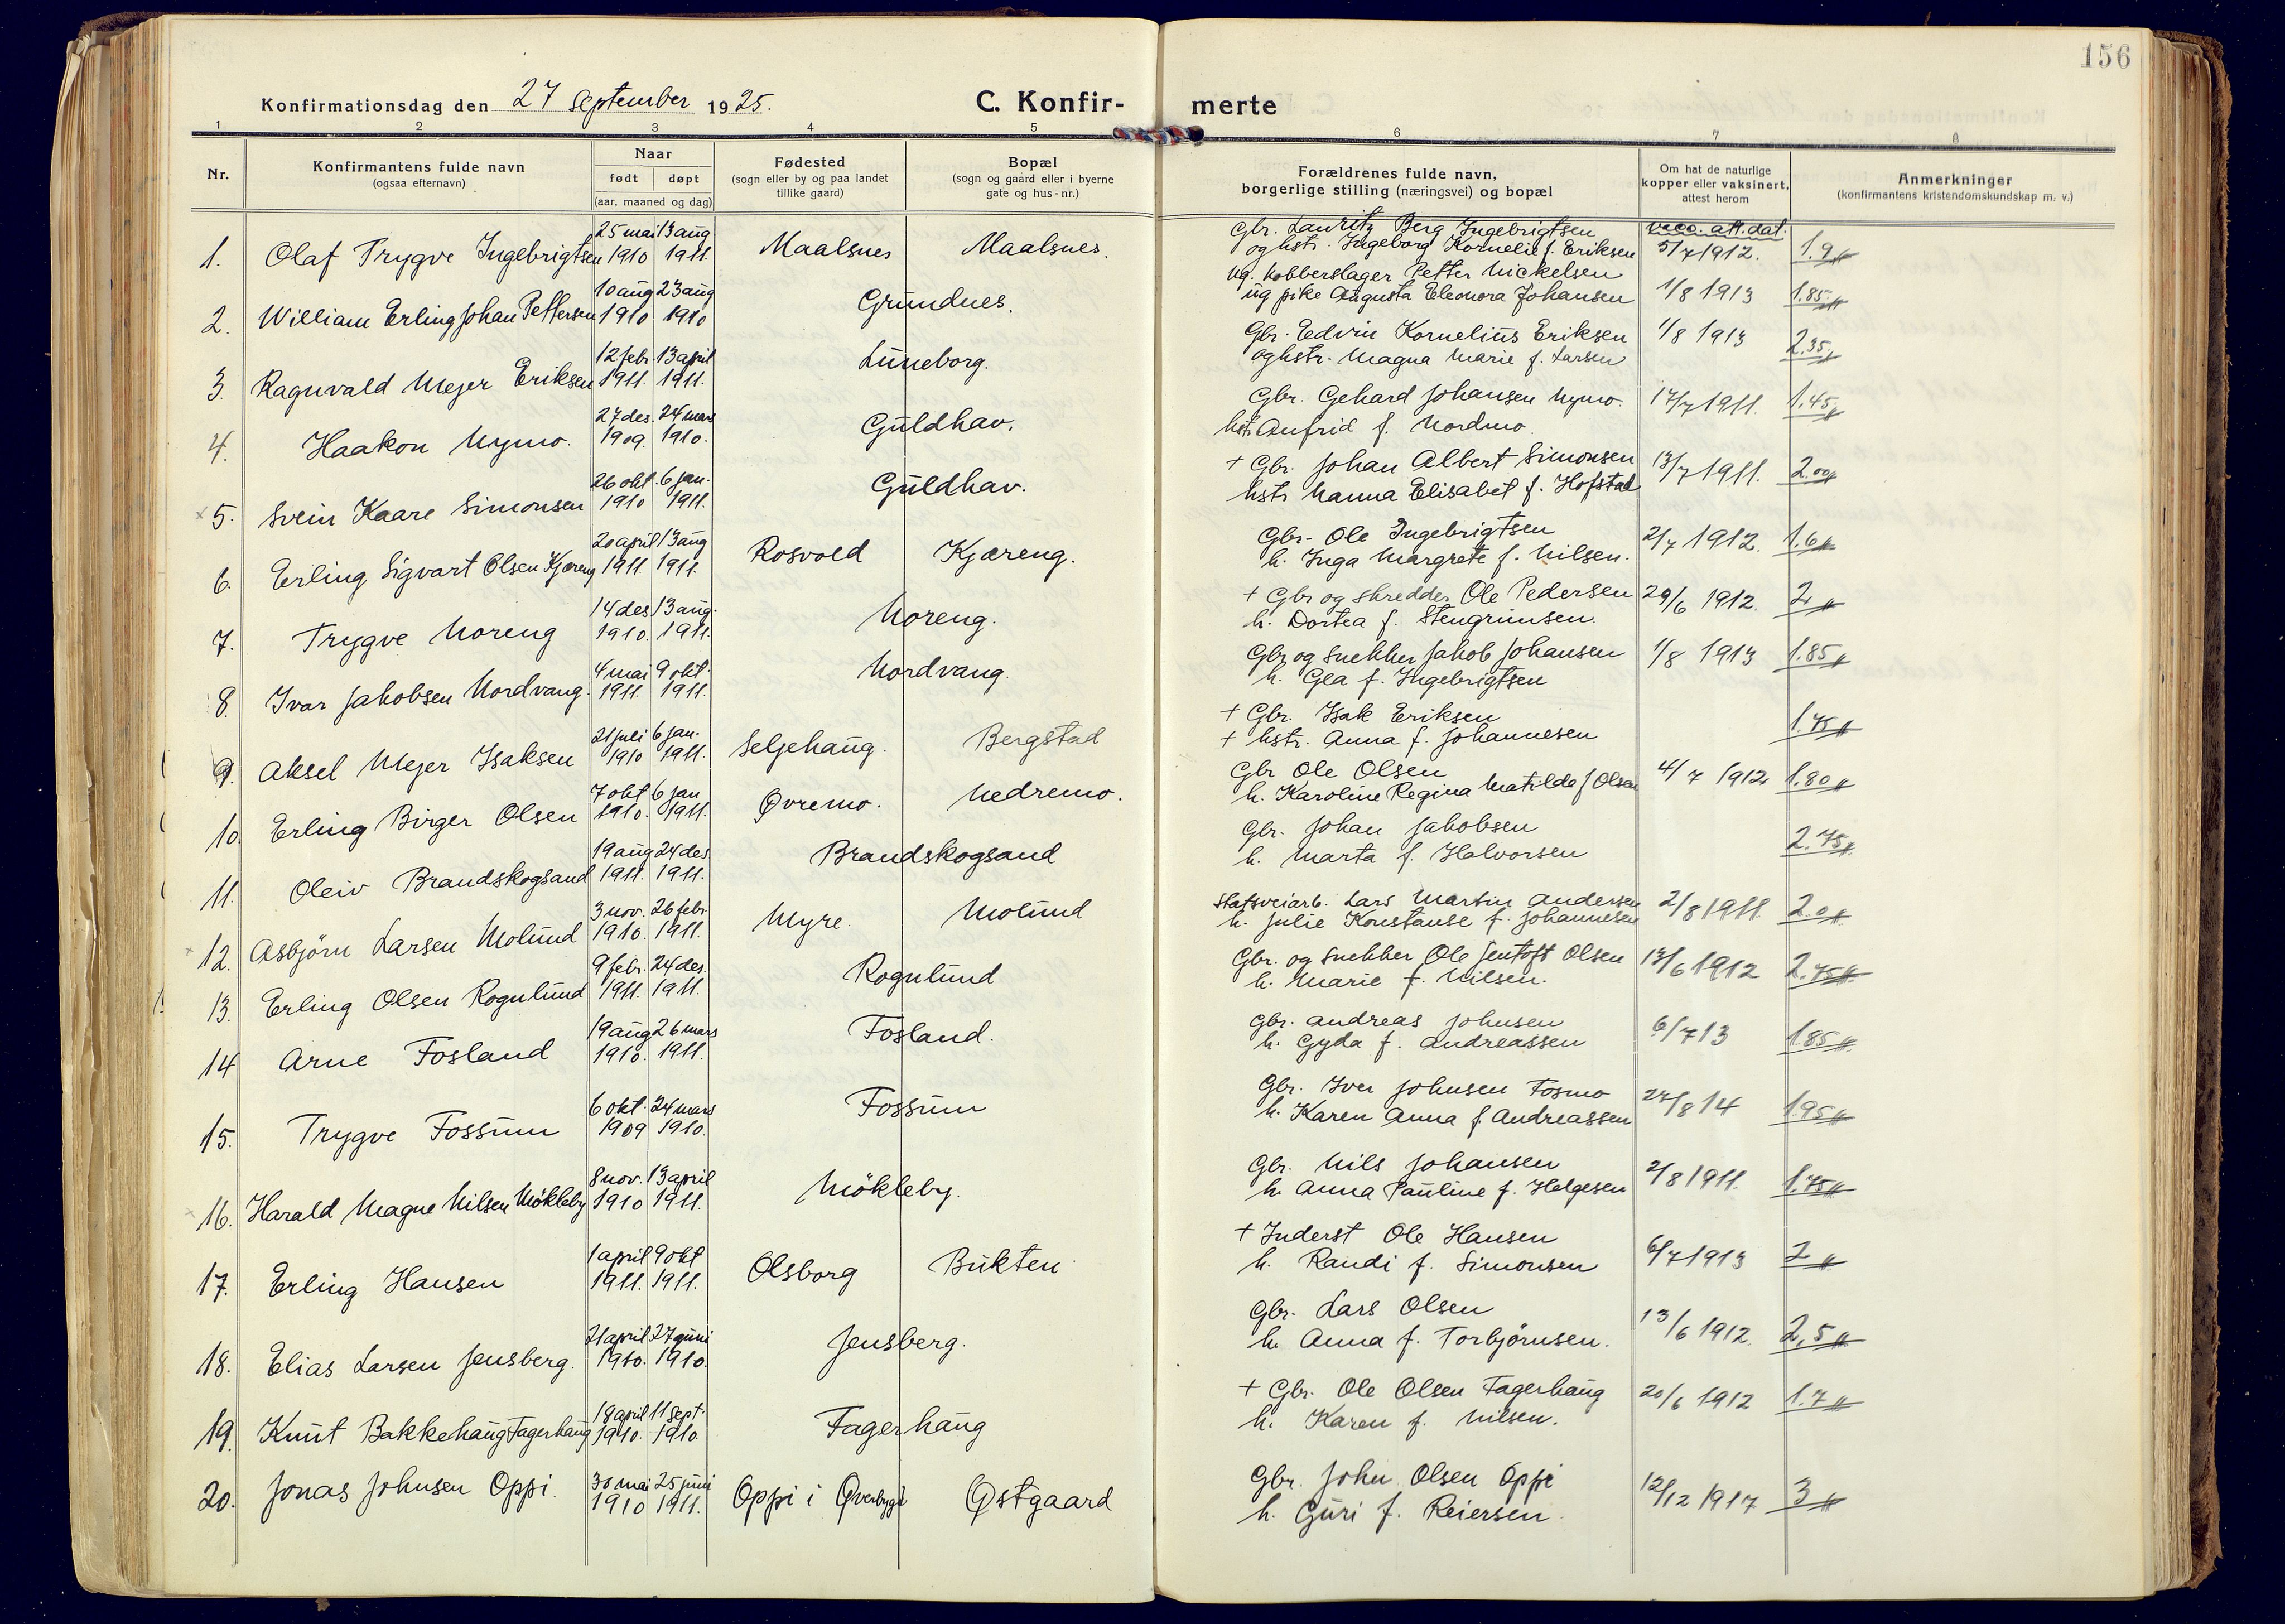 156
Konfirmationsdag den 27 September 1925.
C. Konfir- merte
1 2 3 4 5 6 7 8
Nr.
Konfirmantens fulde navn
(ogsaa efternavn)
Naar
født døpt
(aar, maaned og dag)
Fødested
(sogn eller by og paa landet
tillike gaard)
Bopæl
(sogn og gaard eller i byerne
gate og hus-nr.)
Forældrenes fulde navn,
borgerlige stilling (næringsvei) og bopæl
Om hat de naturlige
kopper eller vaksinert,
attest herom
Anmerkninger
(konfirmantens kristendomskundskap m. v.)
25 mai 13 aug Gbr. Lauritz Berg Ingebrigtsen vacc. att. dat.
1. Olaf Trygve Ingebrigtsen 1910 1911. Maalsnes Maalsnes. og hstr. Ingeborg Kornelie f. Eriksen 5/7 1912. 1.9
10 aug 23 aug ug. kobberslager Petter Mickelsen
2. William Erling Johan Pettersen 1910 1910 Grundnes. ug pike Augusta Eleonora Johansen 1/8 1913 1.85
12 febr. 13 april Gbr. Edvin Kornelius Eriksen 1/8 1913
3. Ragnvald Meyer Eriksen 1911. 1911. Luneborg. og hstr. Magna Marie f. Larsen 2.35
27 des. 24 mars Gbr. Gehard Johansen Nymo. 17/7 1911. 1.45
4. Haakon Nymo. 1909. 1910. Guldhav. hstr Anfrid f. Nordmo.
26 okt. 6 jan. + Gbr. Johan Albert Simonsen 13/7 1911. 2.00
× 5. Svein Kaare Simonsen 1910 1911. Guldhav. hstr Nanna Elisabet f. Hofstad
20 april 13 aug Gbr. Ole Ingebrigtsen 2/7 1912. 1.6
6. Erling Sigvart Olsen Kjæreng 1911. 1911. Rosvold Kjæreng. h. Inga Margrete f. Nilsen.
14 des 13 aug. + Gbr og skredder Ole Pedersen 29/6 1912. 2
7. Trygve Moreng 1910. 1911. Moreng. h. Dortea f. Stengrimsen.
4 mai 9 okt. Gbr og Snekker Jakob Johansen 1/8 1913 1.85
8. Ivar Jakobsen Nordvang. 1911. 1911. Nordvang. h. Gea f. Ingebrigtsen
21 juli 6 jan. + Gbr. Isak Eriksen 1.75
9. Aksel Meyer Isaksen 1910 1911. Seljehaug. Bergstad + hstr. Anna f. Johannesen
7 okt 6 jan Gbr Ole Olsen 4/7 1912. 1.80
10. Erling Birger Olsen 1910. 1911. Øvremo. Nedremo. h. Karoline Regina Matilde f Olsen
19 aug 24 des Gbr. Johan Jakobsen 2.75
11. Oleiv Brandskogsand 1911. 1911. Brandskogsand h. Marta f. Halvorsen
3 nov. 26 febr. Statsveiarb. Lars Martin Andersen 2/8 1911. 2.0
× 12. Asbjörn Larsen Molund 1910. 1911. Myre. Molund h. Julie Konstanse f. Johannesen
9 febr. 24 des. Gbr. og Snekker Ole Jentoft Olsen 13/6 1912 2.75
13. Erling Olsen Rognlund 1911. 1911. Rognlund h. Marie f. Nilsen.
19 aug 26 mars Gbr. Andreas Johnsen 6/7 13 1.85
14 Arne Fosland 1910. 1911. Fosland. h. Gyda f. Andreassen
6 okt. 24 mars Gbr. Iver Johnsen Fosmo 24/8 14 1.95
15. Trygve Fossum 1909 1910. Fossum h. Karen Anna f. Andreassen
8 nov. 13 april Gbr. Nils Johansen 2/8 1911. 1.75
× 16. Harald Magne Nilsen Mökleby 1910 1911. Mökleby. h. Anna Pauline f. Helgesen
1 april 9 okt + Inderst Ole Hansen 6/7 1913 2
17. Erling Hansen 1911. 1911. Olsborg Bukten h. Randi f. Simonsen
21 april 27 juni Gbr. Lars Olsen 13/6 1912. 2,5
18. Elias Larsen Jensberg. 1910. 1910. Jensberg. h. Anna f. Torbjörnsen.
18 april 11 sept. + Gbr. Ole Olsen Fagerhaug 20/6 1912 1.7
19. Knut Bakkehaug Fagerhaug 1910. 1910 Fagerhaug h. Karen f. Nilsen.
30 mai 25 juni Gbr. John Olsen Oppi 12/12 1917 3
20. Jonas Johnsen Oppi. 1910 1911. Oppi i Øverbygd Østgaard h. Guri f. Reiersen